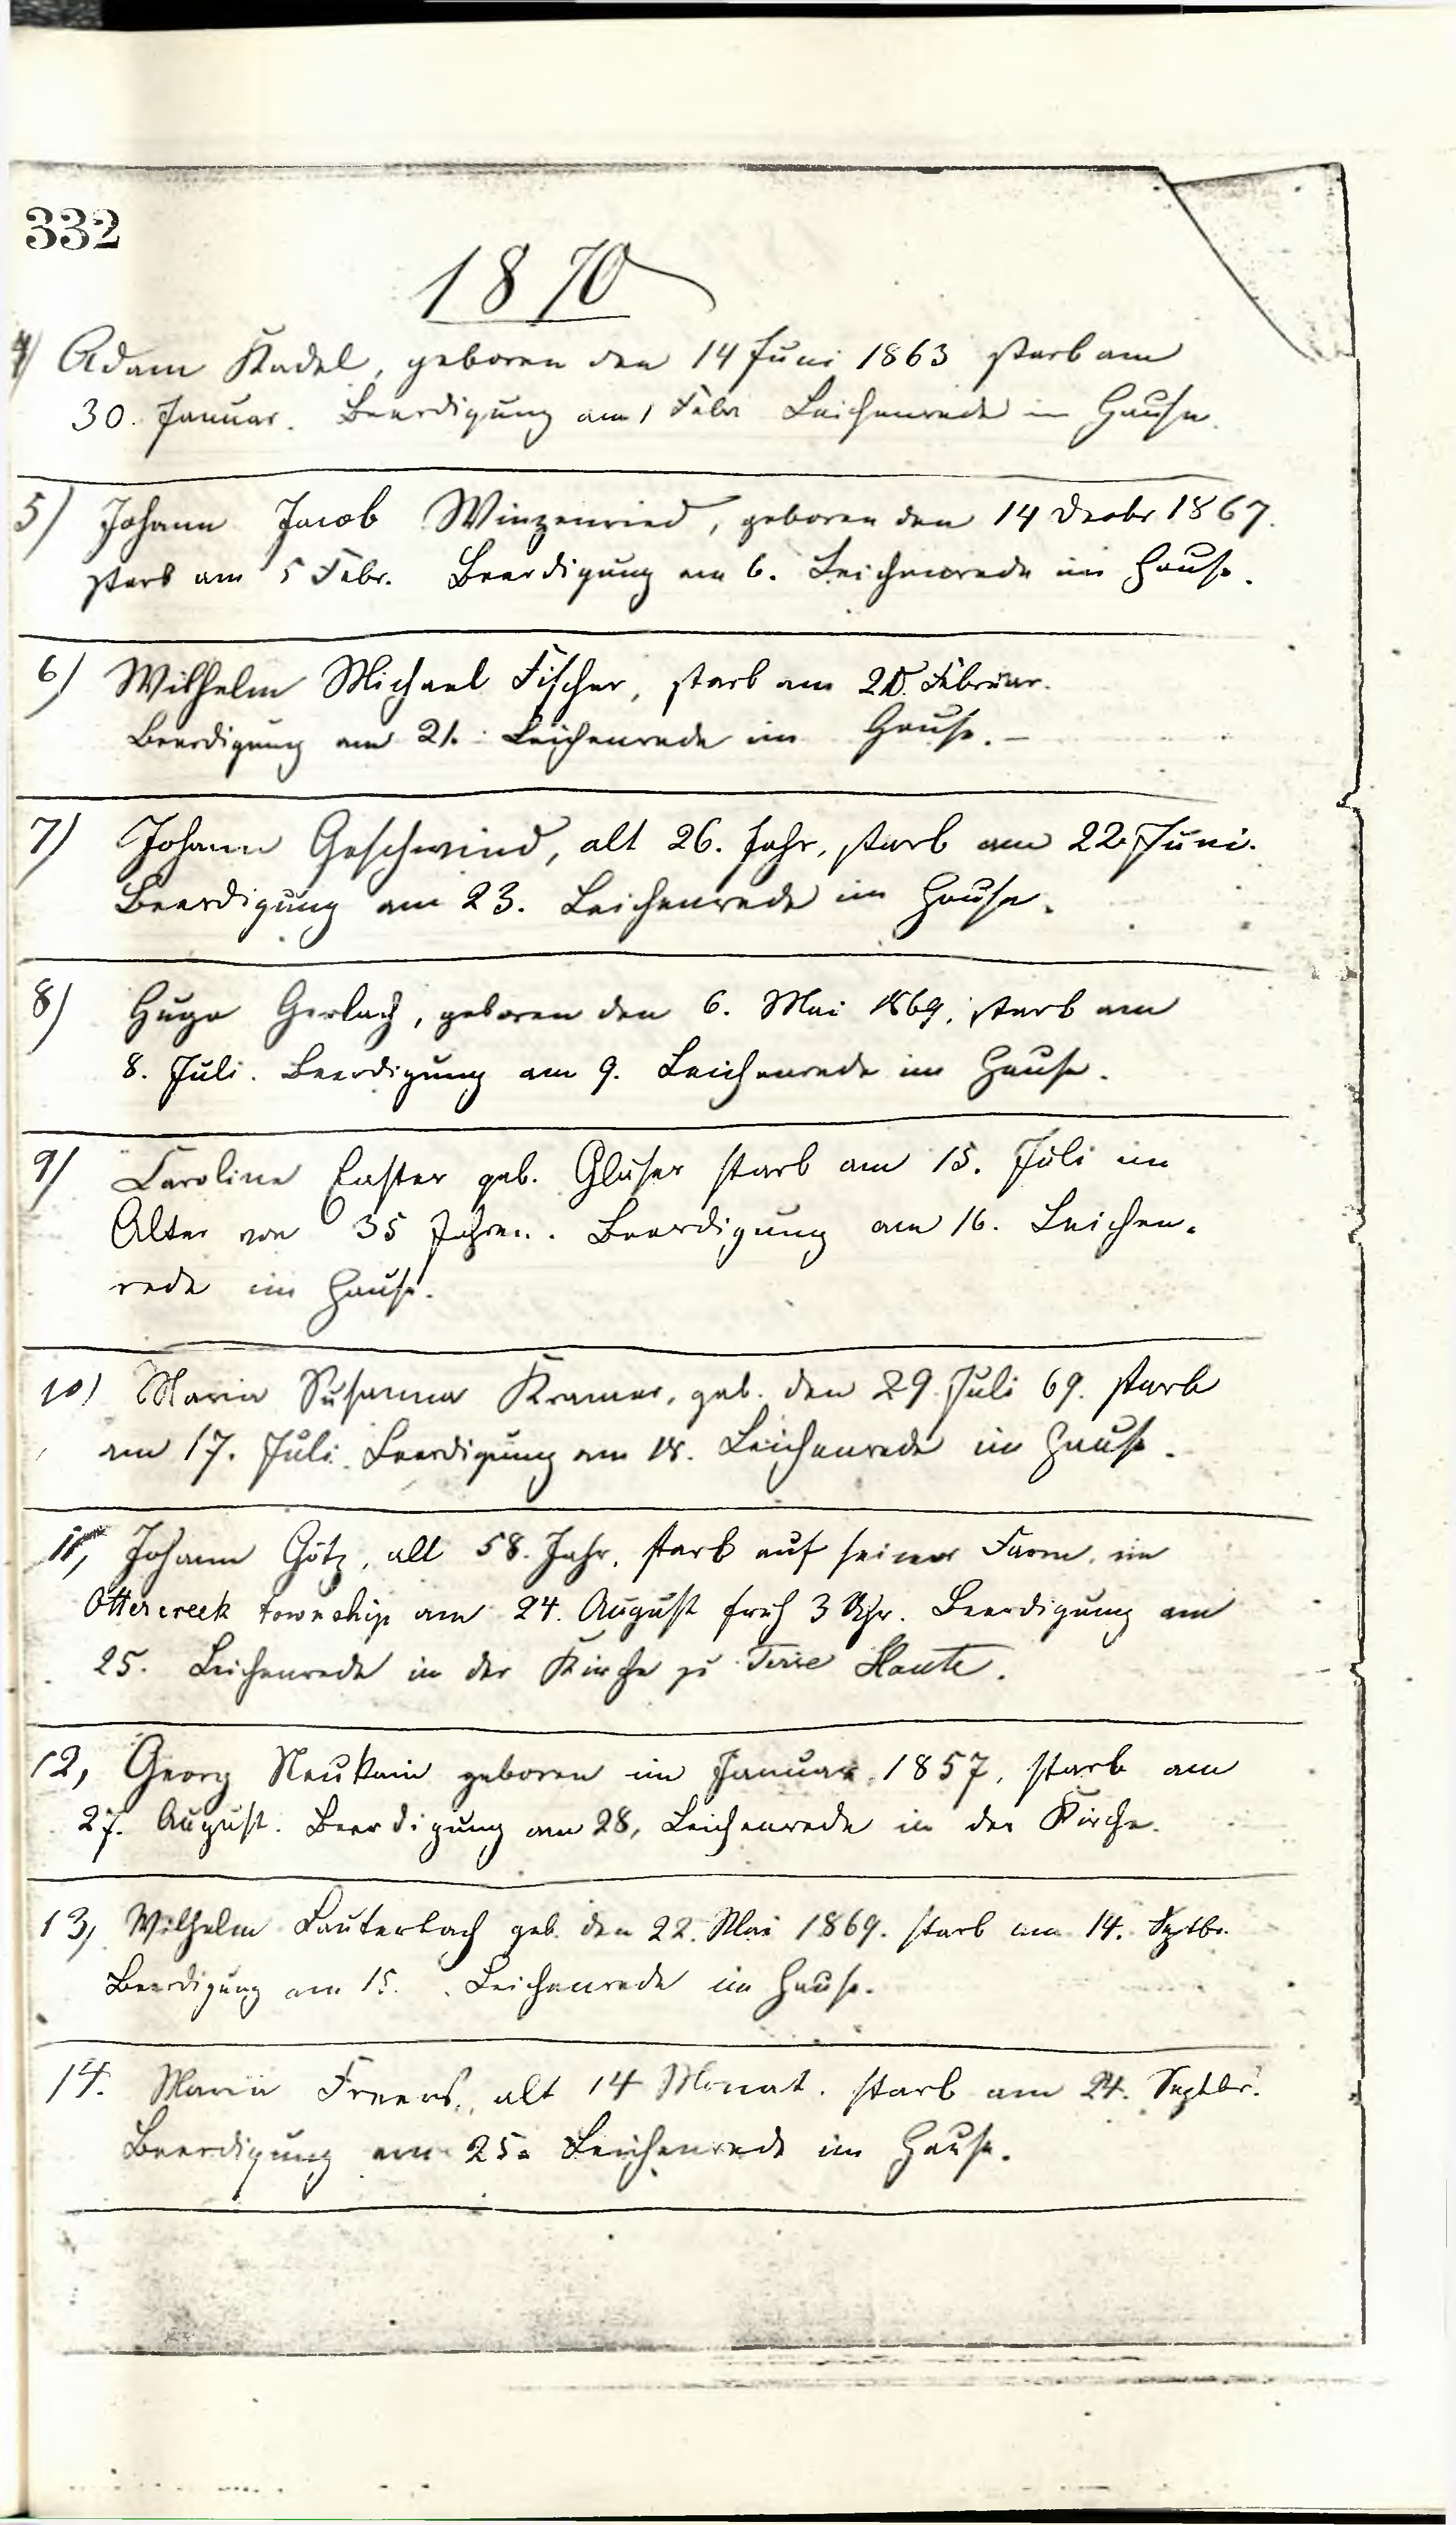 332
1870
4) Adam Kadel, geboren den 14 Juni 1863 starb am
30. Januar. Beerdigung am 1 Febr Leichenrede im Hause.
5) Johann Jacob Winzenried, geboren den 14 Decbr 1867.
starb am 5 Febr. Beerdigung am 6. Leichenrede im Hause.
6) Wilhelm Michael Fischer, starb am 20. Februar.
Beerdigung am 21. Leichenrede im Hause. –
7) Johann Geschwind, alt 26. Jahr, starb am 22. Juni.
Beerdigung am 23. Leichenrede im Hause.
8) Hugo Gerlach, geboren den 6. Mai 1869, starb am
8. Juli. Beerdigung am 9. Leichenrede im Hause.
9) Caroline geb. Glaser starb am 15. Juli im
Alter von 35 Jahren. Beerdigung am 16. Leichen-
rede im Hause.
10) Maria Susanna Kramer, geb. den 29. Juli 69. starb
am 17. Juli. Beerdigung am 18. Leichenrede im Hause.
11, Johann Götz, alt 58. Jahr, starb auf seiner Farm, im
Ottercreek township am 24. August früh 3 Uhr. Beerdigung am
25. Leichenrede in der Kirche zu Terre Haute.
12, Georg Neukam geboren im Januar 1857, starb am
27. August. Beerdigung am 28, Leichenrede in der Kirche.
13, Wilhelm Lauterbach geb. den 22. Mai 1869. starb am 14. Septbr.
Beerdigung am 15. Leichenrede im Hause.
14. Maria Freers, alt 14 Monat. starb am 24. Septbr.
Beerdigung am 25. Leichenrede im Hause.